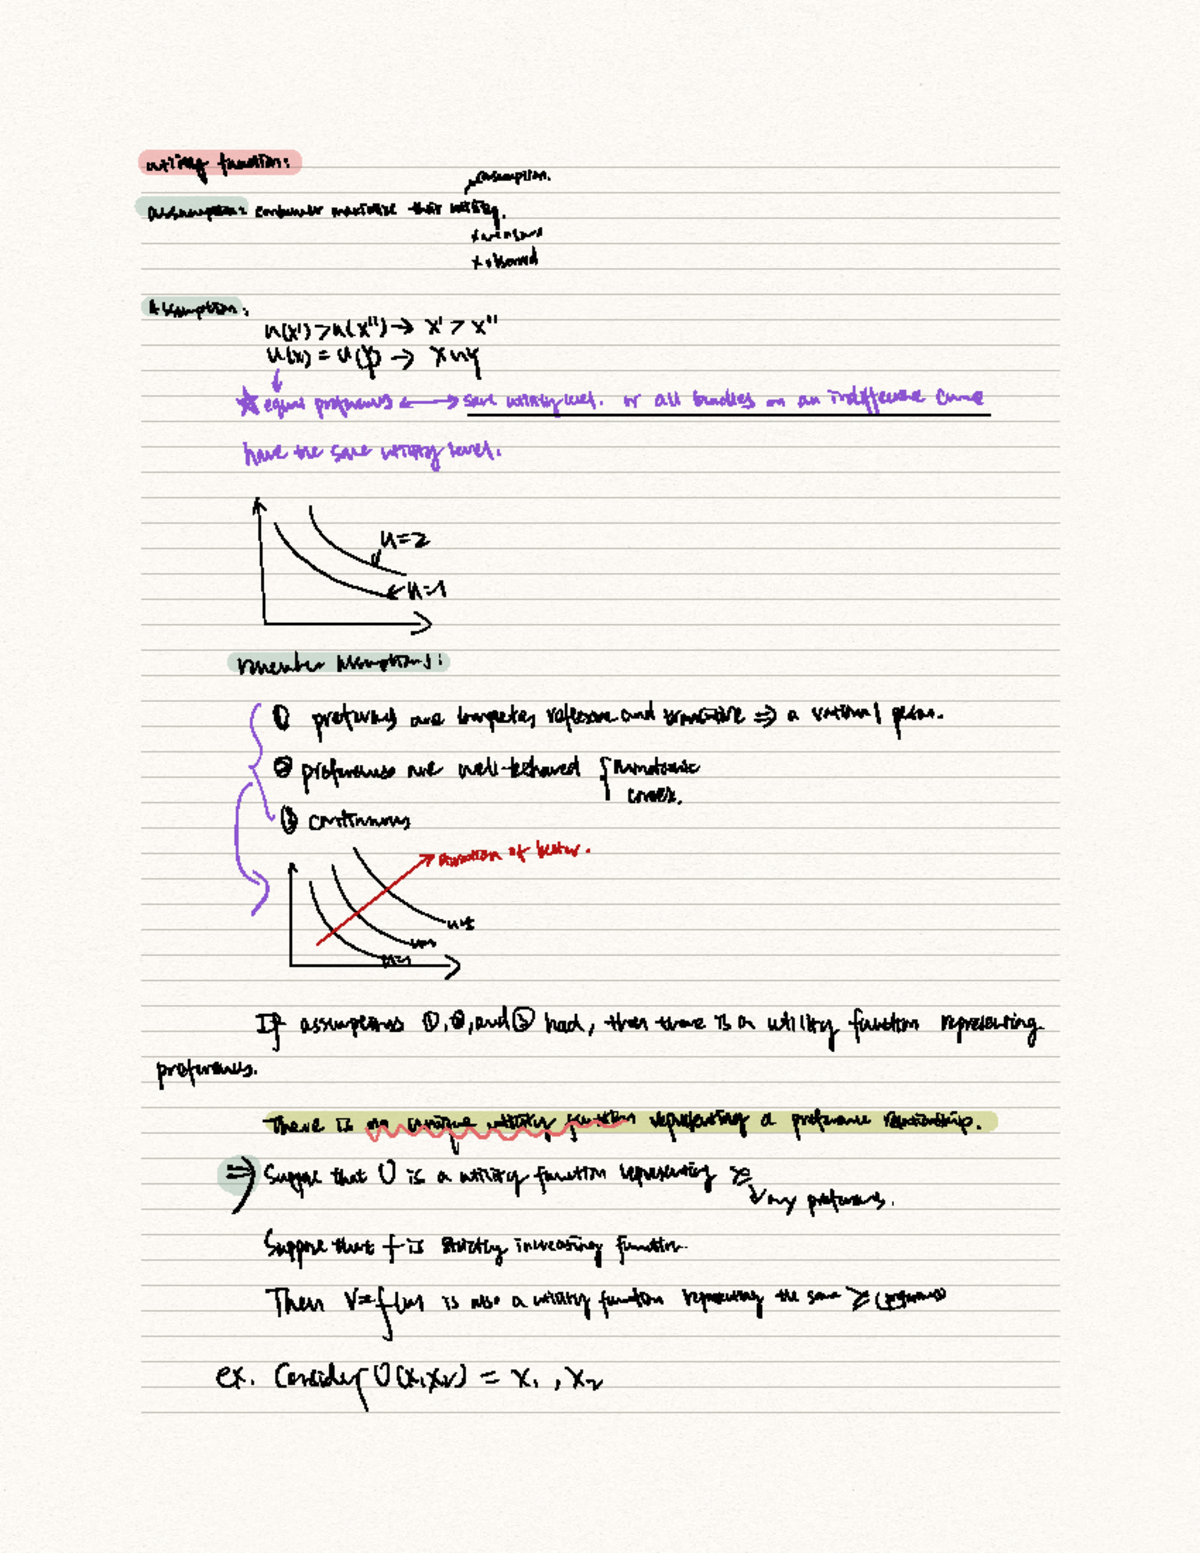 utility function:
assumption.
assumption: consumer maximize their utility.
x measure
x observed
Assumption:
u(x') > u(x'') → x' > x''
u(x) = u(y) → x ~ y
☆ equal preferences ↔ same utility level. or all bundles on an indifference curve
have the same utility level.
u=2
u=1
remember assumptions:
① preferences are complete, reflexive and transitive ⇒ a rational person.
② preferences are well-behaved { monotonic
convex.
③ continuous
direction of better.
u=1
If assumptions ①, ②, and ③ hold, then there is a utility function representing
preferences.
There is an unique utility function representing a preference relationship.
⇒ Suppose that U is a utility function representing ≿
my preferences.
Suppose that f is strictly increasing function.
Then V=f(u) is also a utility function representing the same ≿ (preferences)
ex. Consider U(x₁x₂) = x₁, x₂